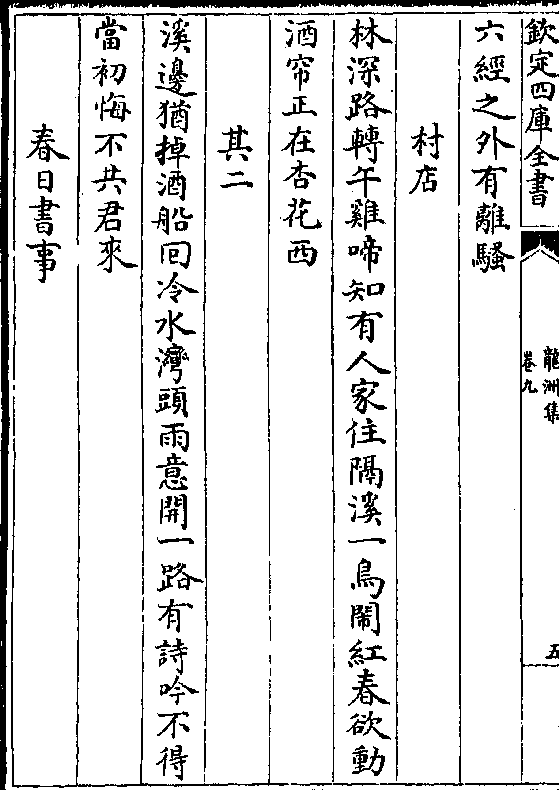 欽定四庫全書
龍洲集
卷九
五
六經之外有離騷
村店
林深路轉午雞啼知有人家住隔溪一鳥鬧紅春欲動
酒帘正在杏花西
其二
溪邊猶掉酒船回冷水灣頭雨意開一路有詩吟不得
當初悔不共君來
春日書事